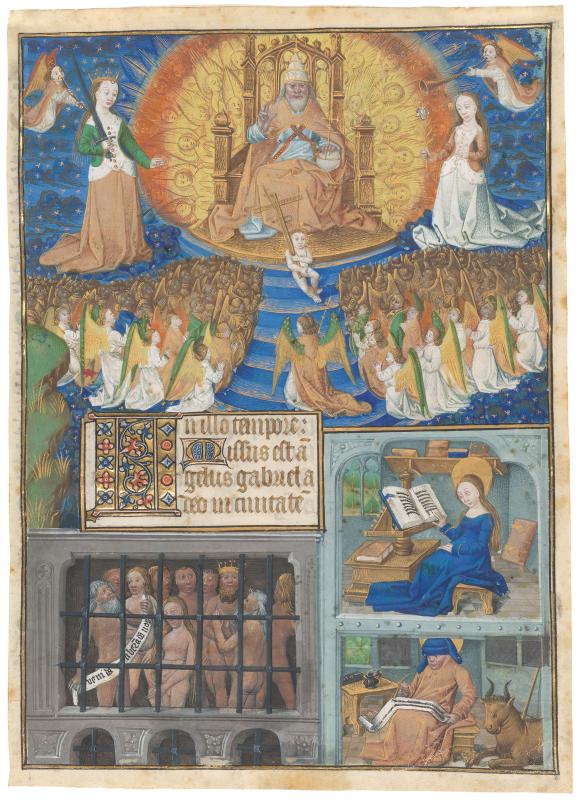 In illo tempore:
Missus est ā
gelus gabriel a
deo in ciuitatē
veni ad